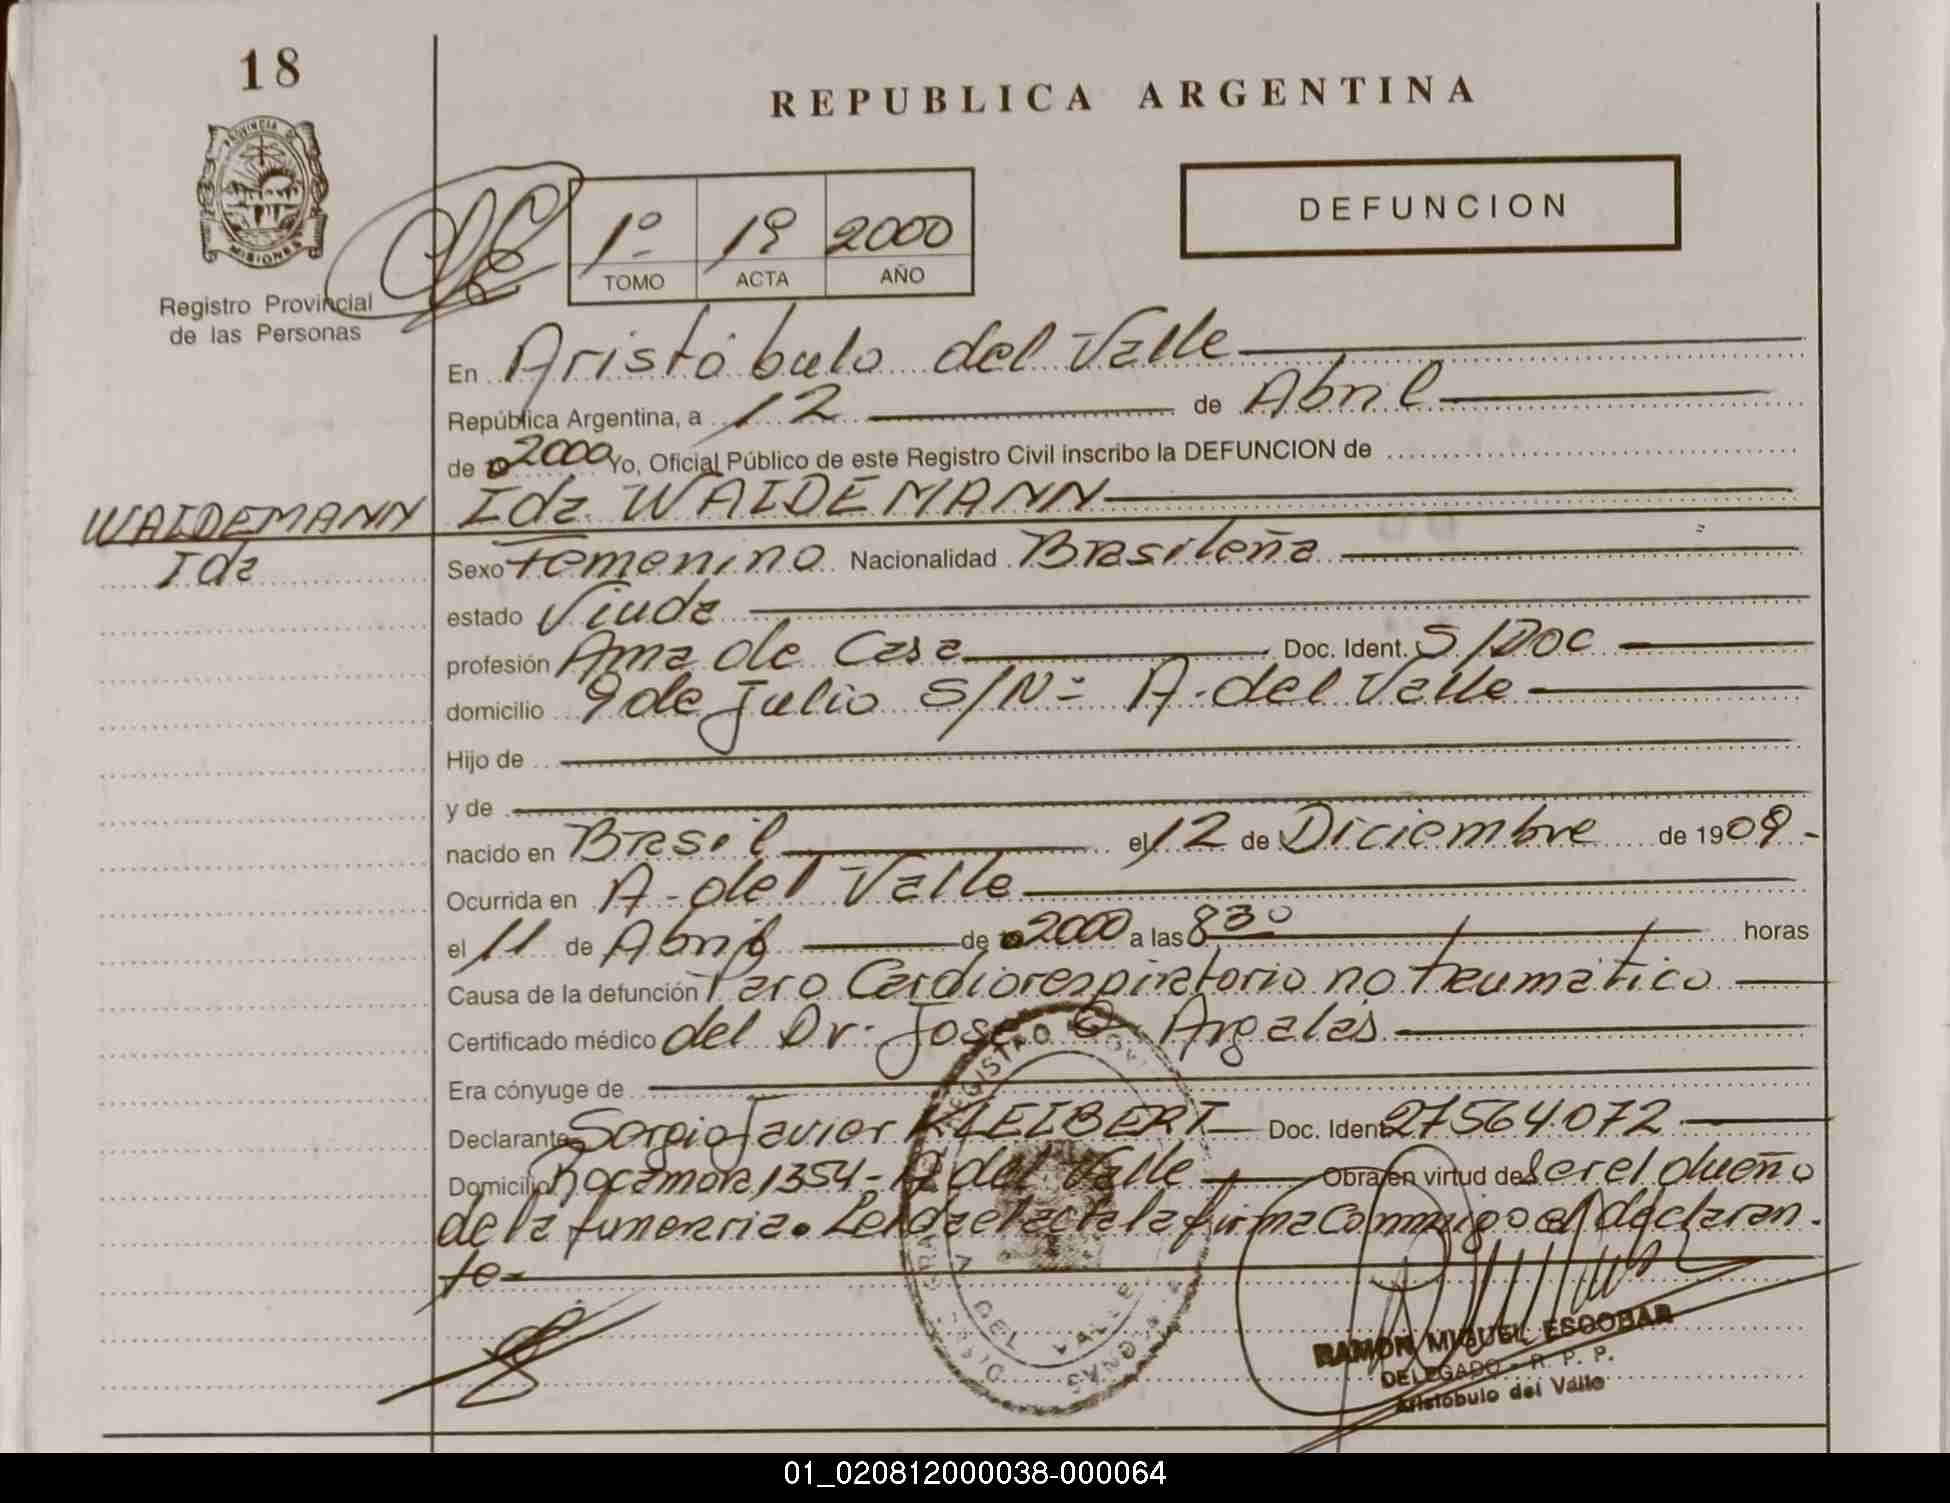 18
REPUBLICA ARGENTINA
PROVINCIA DE
MISIONES
Registro Provincial
de las Personas
1º 2000
TOMO ACTA AÑO
DEFUNCION
En Aristóbulo del Valle
República Argentina, a 12 de Abril
de 2000 Yo, Oficial Público de este Registro Civil inscribo la DEFUNCION de
WAIDEMANN Ida WAIDEMANN
Ida
Sexo Femenino Nacionalidad Brasileña
estado Viuda
profesión Ama de Casa Doc. Ident. S/Doc
domicilio 9 de Julio S/Nº A. del Valle
Hijo de
y de
nacido en Brasil el 12 de Diciembre de 1909
Ocurrida en A. del Valle
el 11 de Abril de 2000 a las 8 30 horas
Causa de la defunción Paro Cardiorespiratorio no traumático
Certificado médico del Dr. Jose Argalas
Era cónyuge de
Declarante Sergio Javier KLEIBERT Doc. Ident 27564072
Domicilio Rocamora 1354 - A del Valle Obra en virtud de Ser el dueño
de la funeraria. Leida el acta la firma Conmigo el declaran
te-
REGISTRO
DEL VALLE
RAMON MIGUEL ESCOBAR
DELEGADO - R. P. P.
Aristóbulo del Valle
01_020812000038-000064